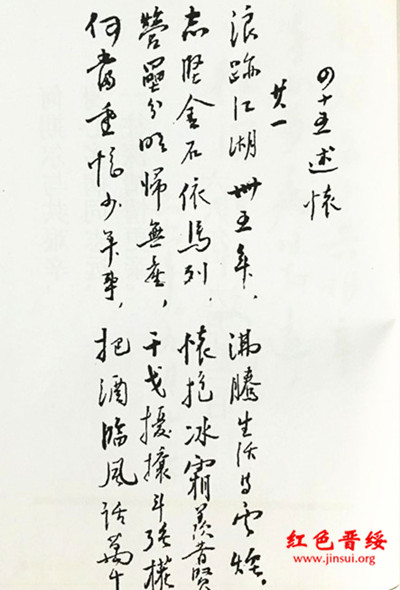 四十五述懷
其一
浪跡江湖五年、沸騰生活与雲烟。
志堅金石依馬列、懷抱冰霜羡昔賢
營壘分明歸無產，干戈擾攘斗強權
何當重憶少年事，把酒臨風話萬千
红色晋绥
www.jinsui.org